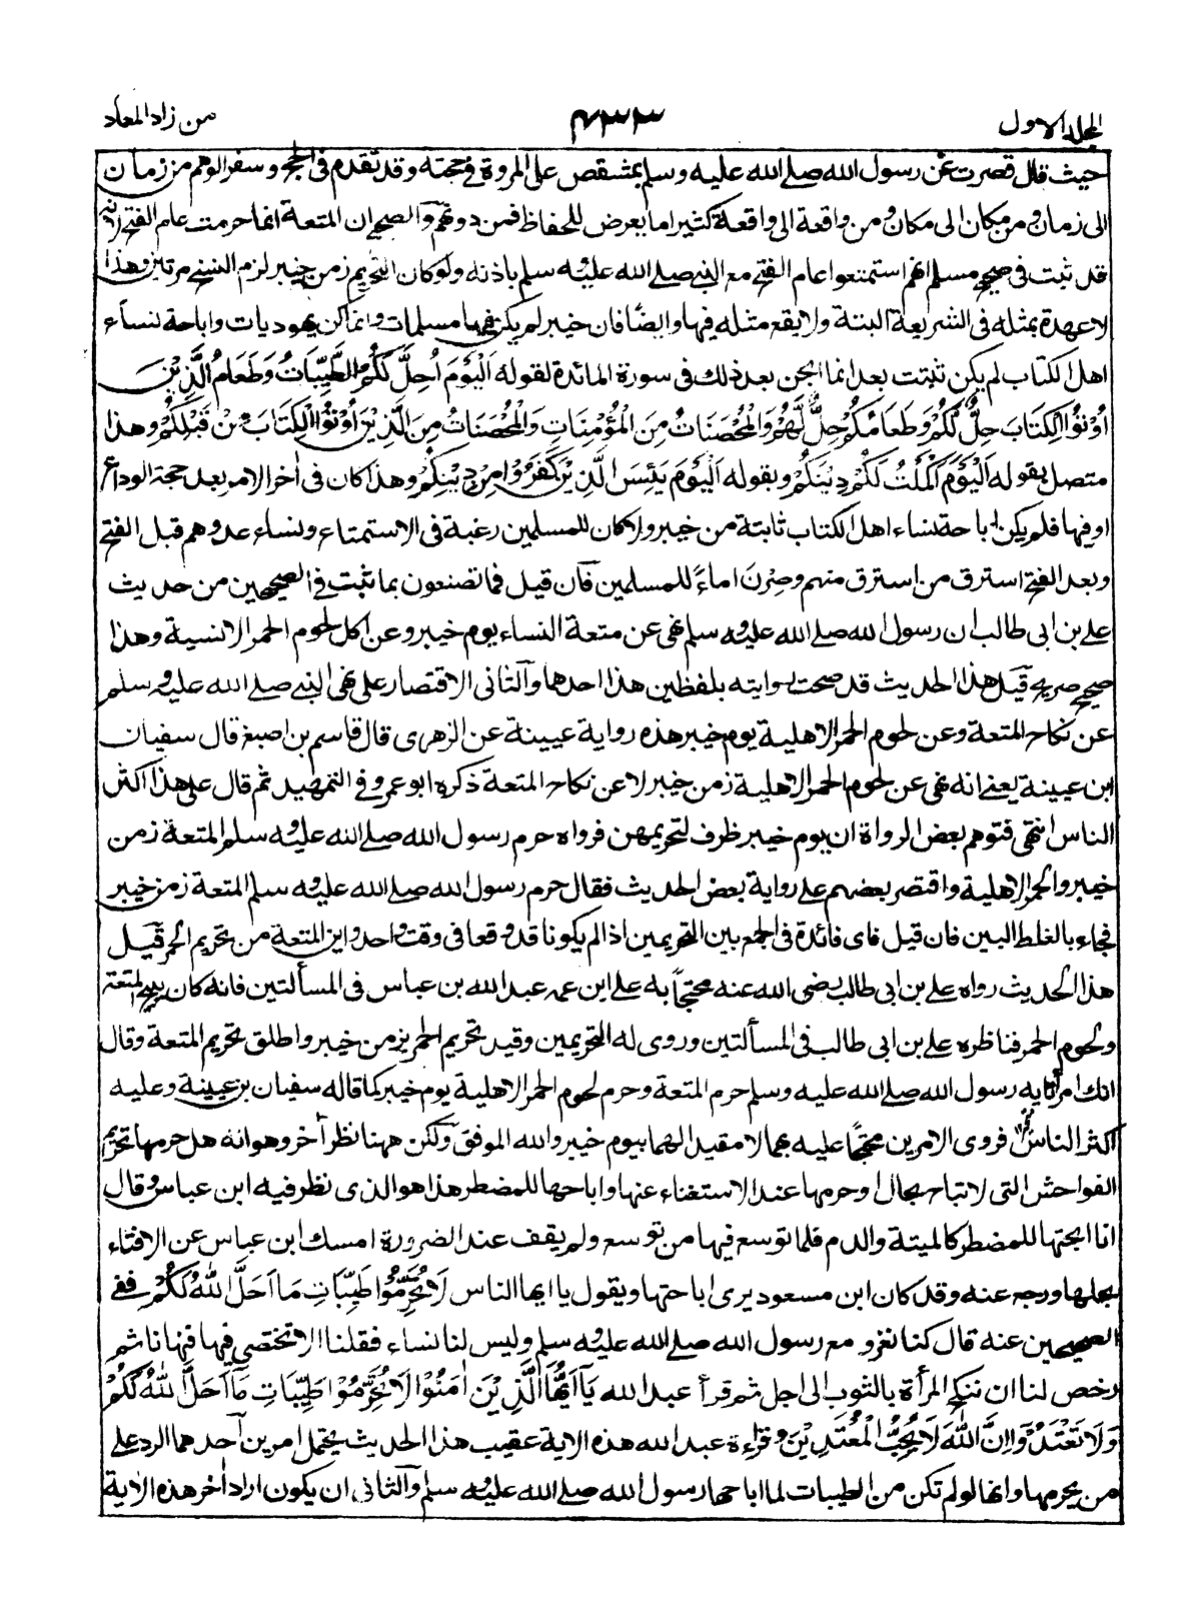 المجلد الاول
٤٣٣
من زاد المعاد
حيث قال قصرت عن رسول الله صلے الله عليه وسلم بمشقص على المروة فے حجته وقد تقدم فى الحج وسفر الوهم من زمان
الى زمان ومن مكان الى مكان ومن واقعة الى واقعة كثيرا ما يعرض للحفاظ فمن دونهم والصحيح ان المتعة انما حرمت عام الفتح لانه
قد ثبت فى صحيح مسلم انهم استمتعوا عام الفتح مع النبے صلے الله عليه وسلم باذنه ولو كان التحريم زمن خيبر لزم النسخ مرتين وهذا
لا عهدة بمثله فى الشريعة البتة ولا يقع مثله فيها وايضًا فان خيبر لم يكن فيها مسلمات وانما كن يهوديات واباحة نساء
اهل الكتاب لم يكن تثبت بعد انما ابحن بعد ذلك فى سورة المائدة لقوله اَلْيَوْمَ اُحِلَّ لَكُمُ الطَّيِّبَاتُ وَطَعَامُ الَّذِيْنَ
اُوْتُوا الْكِتَابَ حِلٌّ لَّكُمْ وَطَعَامُكُمْ حِلٌّ لَّهُمْ وَالْمُحْصَنَاتُ مِنَ الْمُؤْمِنَاتِ وَالْمُحْصَنَاتُ مِنَ الَّذِيْنَ اُوْتُوا الْكِتَابَ مِنْ قَبْلِكُمْ وهذا
متصل بقوله اَلْيَوْمَ اَكْمَلْتُ لَكُمْ دِيْنَكُمْ وبقوله اَلْيَوْمَ يَئِسَ الَّذِيْنَ كَفَرُوْا مِنْ دِيْنِكُمْ وهذا كان فى اٰخر الامر بعد حجة الوداع
او فيها فلم يكن اباحة نساء اهل الكتاب ثابتة من خيبر ولا كان للمسلمين رغبة فى الاستمتاع ونساء عدوهم قبل الفتح
وبعد الفتح استرق من استرق منهم وصرن اماءً للمسلمين فآن قيل فما تصنعون بما ثبت فے الصحيحين من حديث
علے بن ابى طالب ان رسول الله صلے الله عليه وسلم نهى عن متعة النساء يوم خيبر وعن اكل لحوم الحمر الانسية وهذا
صحيح صريح قيل هذا الحديث قد صحت روايته بلفظين هذا احدهما والثانى الاقتصار على نهى النبے صلے الله عليه وسلم
عن نكاح المتعة وعن لحوم الحمر الاهلية يوم خيبر هذه رواية عيينة عن الزهرى قال قاسم بن اصبغ قال سفيان
ابن عيينة يعنے انه نهى عن لحوم الحمر الاهلية زمن خيبر لا عن نكاح المتعة ذكره ابو عمر و فے التمهيد ثم قال على هذا اكثر
الناس انتهى فتوهم بعض الرواة ان يوم خيبر ظرف لتحريمهن فرواه حرم رسول الله صلے الله عليه وسلم المتعة زمن
خيبر والحمر الاهلية واقتصر بعضهم علے رواية بعض الحديث فقال حرم رسول الله صلے الله عليه وسلم المتعة زمن خيبر
فجاء بالغلط البين فان قيل فاى فائدة فى الجمع بين التحريمين اذا لم يكونا قد وقعا فى وقت واحد واين المتعة من تحريم الحمر قيل
هذا الحديث رواه علے بن ابى طالب رضى الله عنه محتجًا به علے ابن عمه عبد الله بن عباس فى المسألتين فانه كان يبيح المتعة
ولحوم الحمر فناظره علے بن ابى طالب فى المسألتين وروى له التحريمين وقيد تحريم الحمر بزمن خيبر واطلق تحريم المتعة وقال
انك امرؤ تايه رسول الله صلے الله عليه وسلم حرم المتعة وحرم لحوم الحمر الاهلية يوم خيبر كما قاله سفيان بن عيينة وعليه
اكثر الناس فروى الامرين محتجًا عليه بهما لا مقيد الهما بيوم خيبر والله الموفق ولكن ههنا نظر آخر وهو انه هل حرمها تحريم
الفواحش التى لا تباح بحال او حرمها عند الاستغناء عنها واباحها للمضطر هذا هو الذى نظر فيه ابن عباس وقال
انا ابحتها للمضطر كالميتة والدم فلما توسع فيها من توسع ولم يقف عند الضرورة امسك ابن عباس عن الافتاء
بحلها ورجع عنه وقد كان ابن مسعود يرى اباحتها ويقول يا ايها الناس لَا تُحَرِّمُوْا طَيِّبَاتِ مَا اَحَلَّ اللّٰهُ لَكُمْ ففے
الصحيحين عنه قال كنا نغزو مع رسول الله صلے الله عليه وسلم وليس لنا نساء فقلنا الا نختصے فنهانا ثم
رخص لنا ان ننكح المرأة بالثوب الى اجل ثم قرأ عبد الله يَآ اَيُّهَا الَّذِيْنَ اٰمَنُوْا لَا تُحَرِّمُوْا طَيِّبَاتِ مَآ اَحَلَّ اللّٰهُ لَكُمْ
وَلَا تَعْتَدُوْا اِنَّ اللّٰهَ لَا يُحِبُّ الْمُعْتَدِيْنَ وقراءة عبد الله هذه الاية عقيب هذا الحديث يحتمل امرين آحدهما الرد على
من يحرمها وانها لو لم تكن من الطيبات لما اباحها رسول الله صلے الله عليه وسلم والثانى ان يكون اراد اٰخر هذه الاية